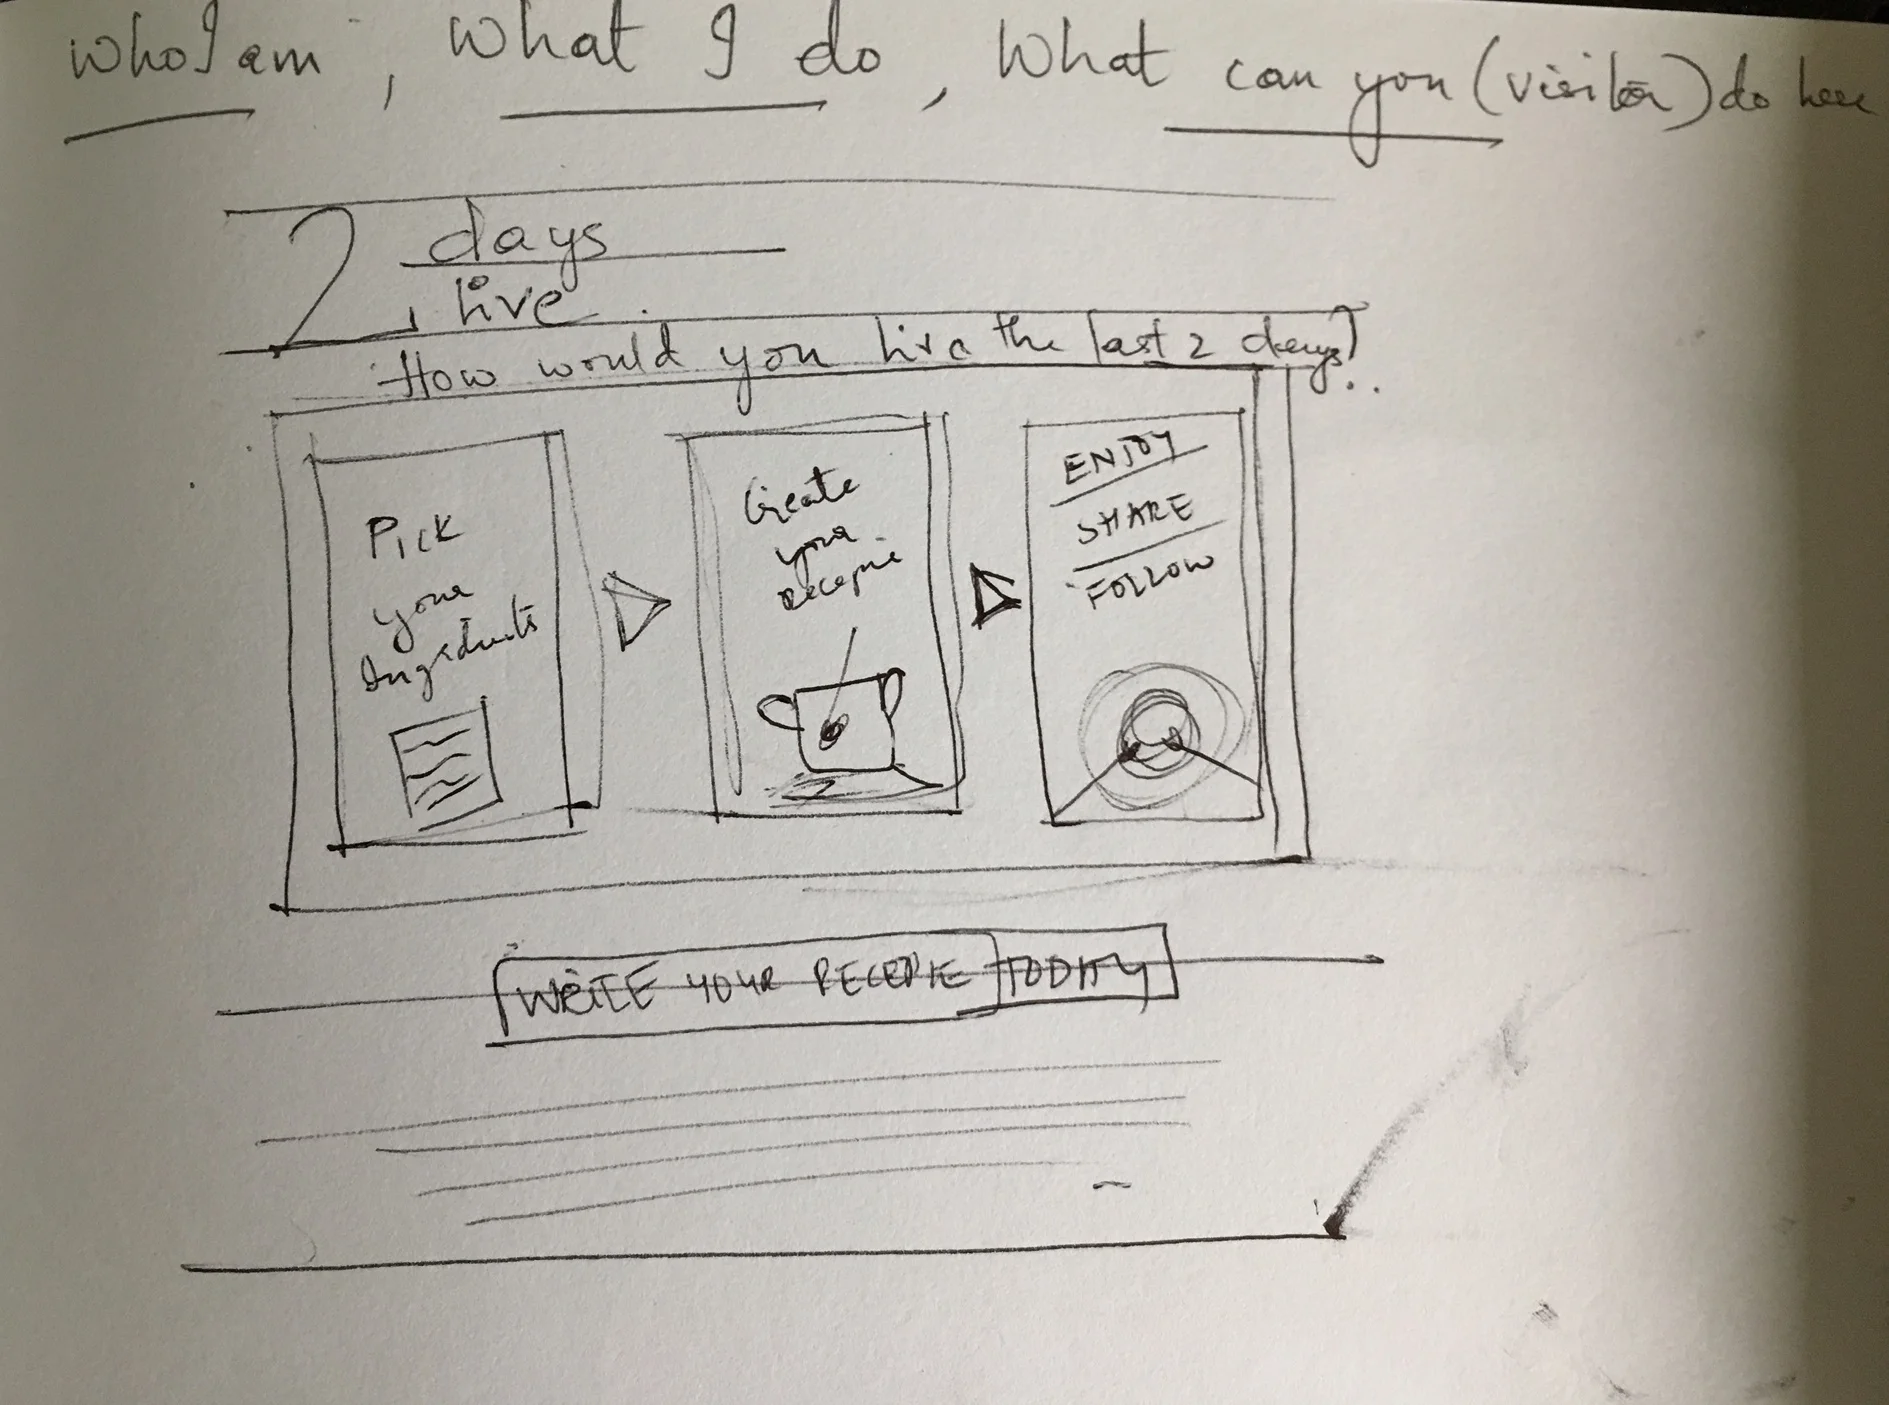 who I am, What I do, What can you (visitor) do here
2 days
live.
How would you live the last 2 days?..
Pick
your
Ingredients
Create
your
Recepie
ENJOY
SHARE
FOLLOW
WRITE YOUR RECEPIE TODAY